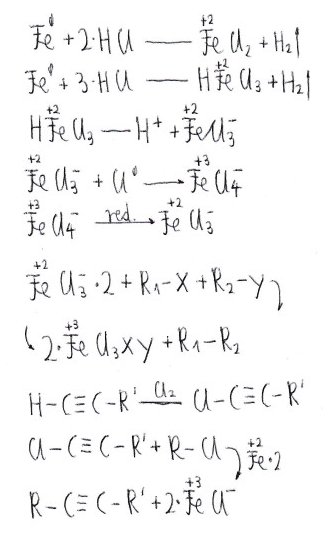 Fe⁰ + 2·HCl — Fe⁺²Cl₂ + H₂↑
Fe⁰ + 3·HCl — HFe⁺²Cl₃ + H₂↑
HFe⁺²Cl₃ — H⁺ + Fe⁺²Cl₃⁻
Fe⁺²Cl₃⁻ + Cl⁰ → Fe⁺³Cl₄⁻
Fe⁺³Cl₄⁻ red.→ Fe⁺²Cl₃⁻
Fe⁺²Cl₃⁻·2 + R₁-X + R₂-Y
2·Fe⁺³Cl₃XY + R₁-R₂
H-C≡C-R' Cl₂ Cl-C≡C-R'
Cl-C≡C-R' + R-Cl Fe⁺²·2
R-C≡C-R' + 2·Fe⁺³Cl⁻